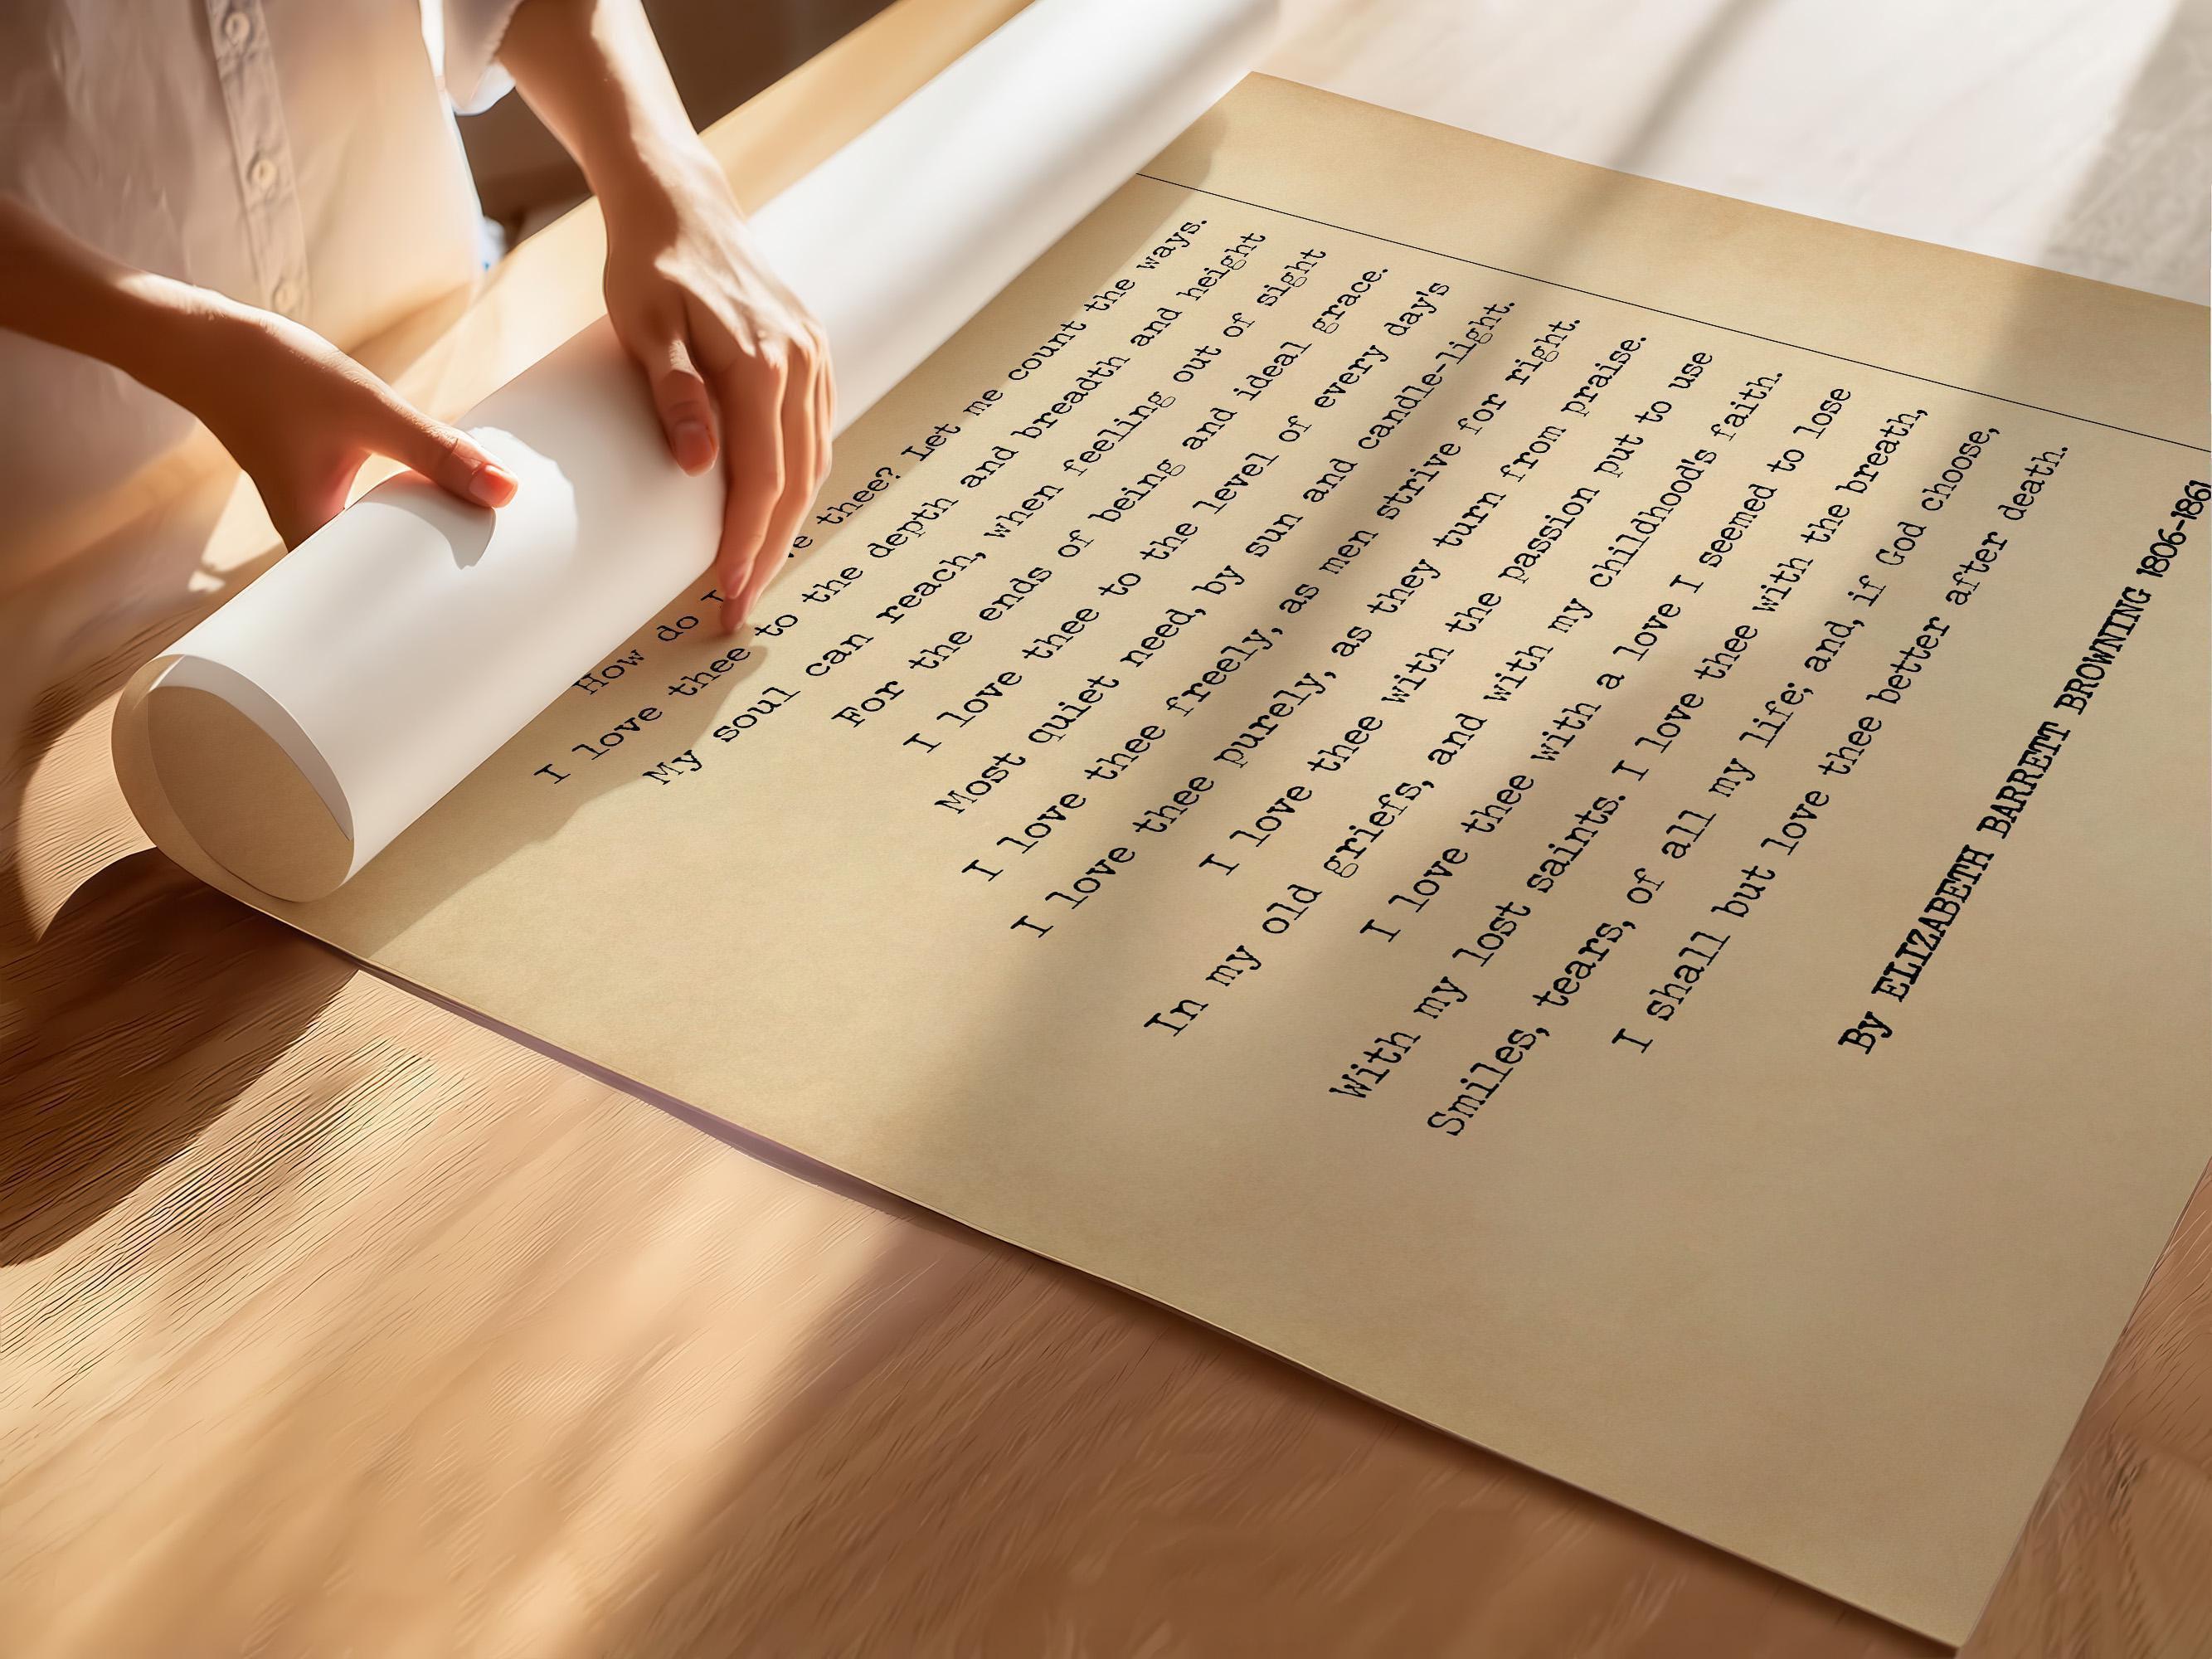 How do I ve thee? Let me count the ways.
I love thee to the depth and breadth and height
My soul can reach, when feeling out of sight
For the ends of being and ideal grace.
I love thee to the level of every day's
Most quiet need, by sun and candle-light.
I love thee freely, as men strive for right.
I love thee purely, as they turn from praise.
I love thee with the passion put to use
In my old griefs, and with my childhood's faith.
I love thee with a love I seemed to lose
With my lost saints. I love thee with the breath,
Smiles, tears, of all my life; and, if God choose,
I shall but love thee better after death.
By ELIZABETH BARRETT BROWNING 1806-1861